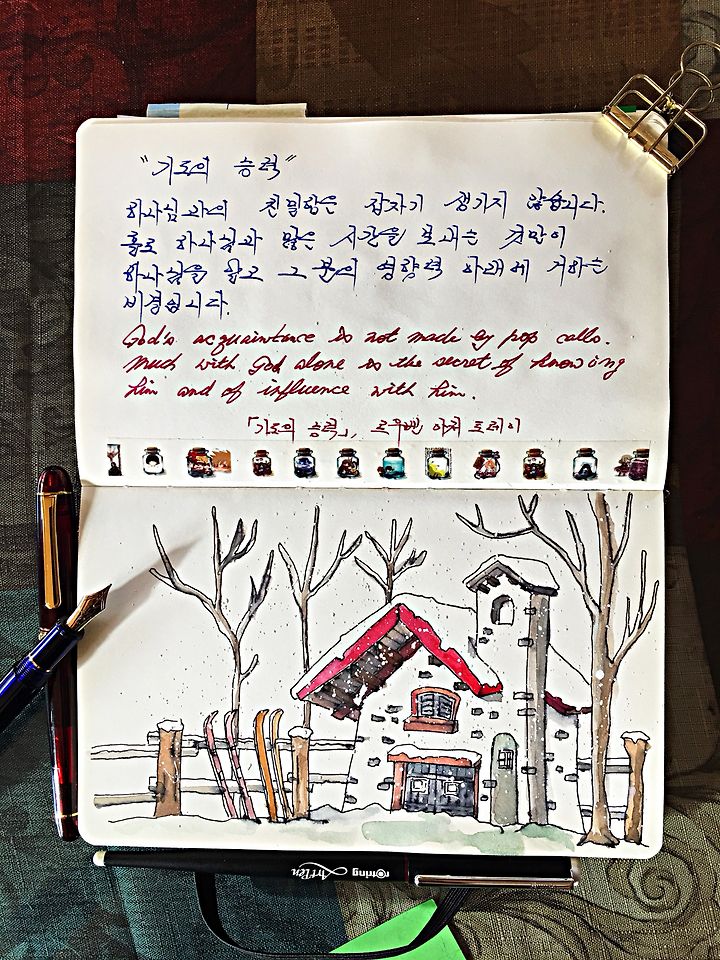 "기도의 능력"
하나님과의 친밀함은 갑자기 생기지 않습니다.
홀로 하나님과 많은 시간을 보내는 것만이
하나님을 알고 그 분의 영향력 아래에 거하는
비결입니다.
God's acquaintance is not made by pop calls.
Much with God alone is the secret of knowing
him and of influence with him.
「기도의 능력」, 르우벤 아처 토레이
rotring ArtPen